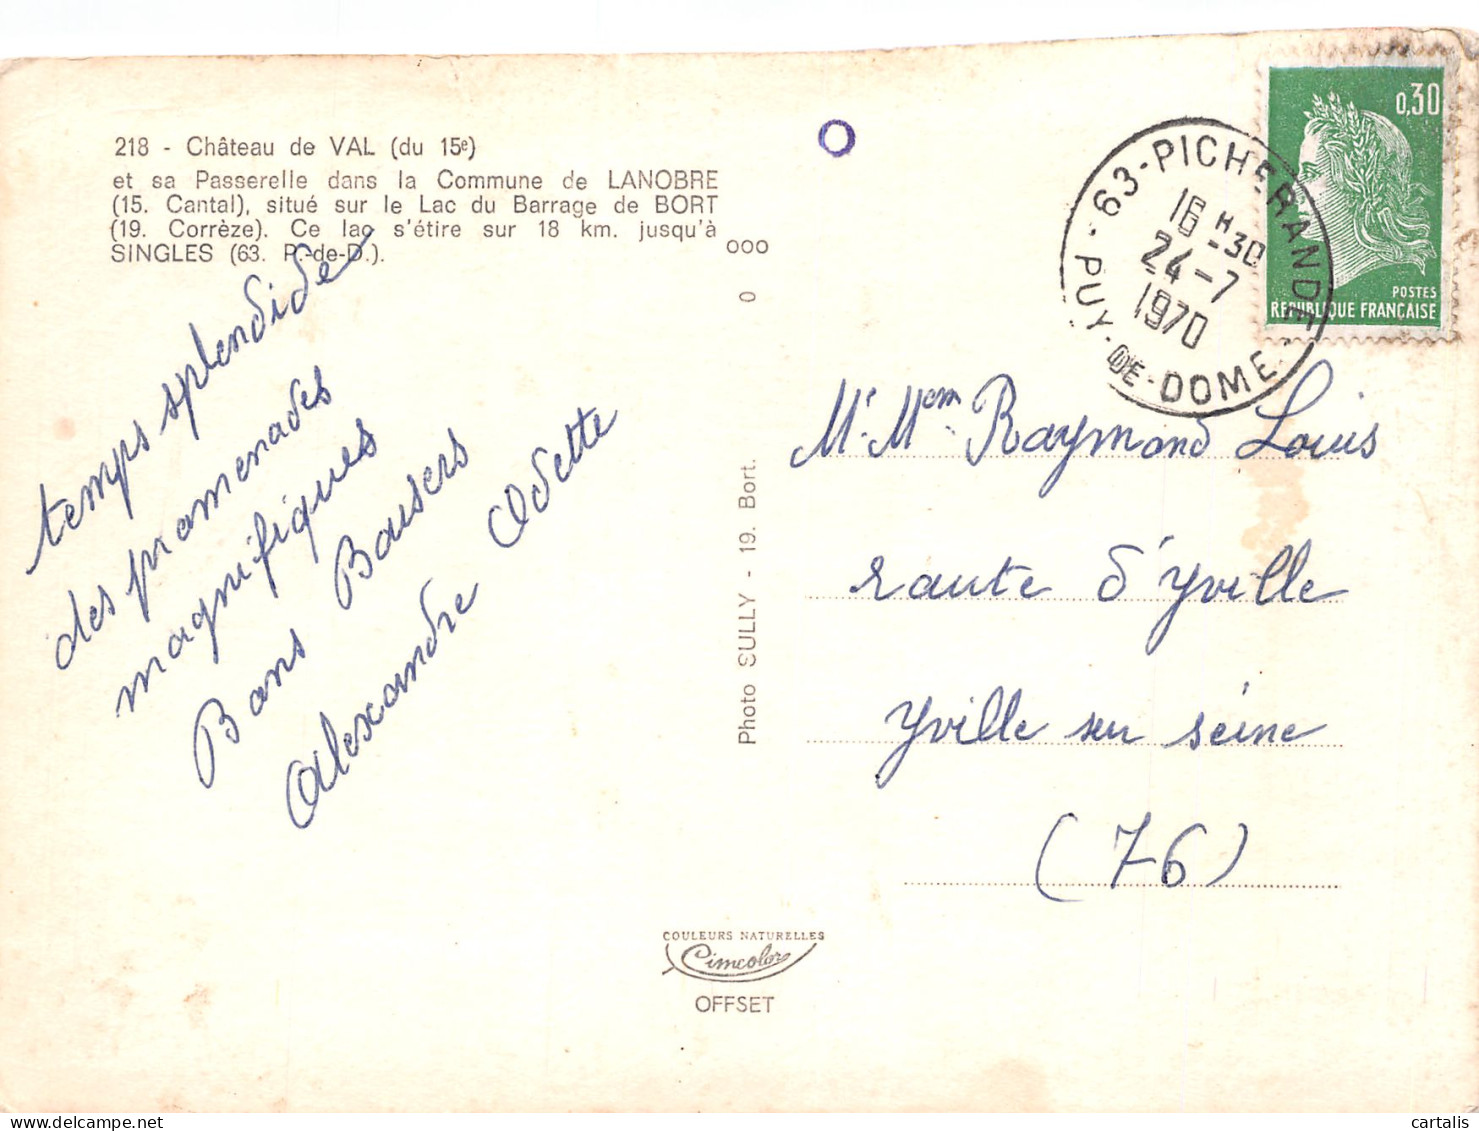 218 - Château de VAL (du 15e)
et sa Passerelle dans la Commune de LANOBRE
(15. Cantal), situé sur le Lac du Barrage de BORT
(19. Corrèze). Ce lac s'étire sur 18 km. jusqu'à
SINGLES (63. P.-de-D.).
temps splendide
des promenades
magnifiques
Bons Baisers
Alexandre Odette
ooo
o
Photo SULLY - 19. Bort.
COULEURS NATURELLES
Cimcolor
OFFSET
63-PICHERANDE
16 H 30
24-7
1970
PUY-DE-DOME
0,30
POSTES
REPUBLIQUE FRANÇAISE
Mr Mem Raymond Louis
route d'Yville
Yville sur seine
(76)
cartalis